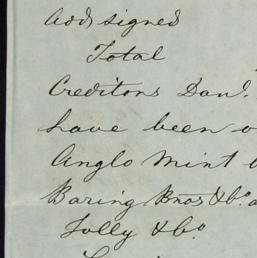 and signed
Total
Creditors Danl.
have been o
Anglo Mint
Baring Bros & Co. a
Jolly & Co.